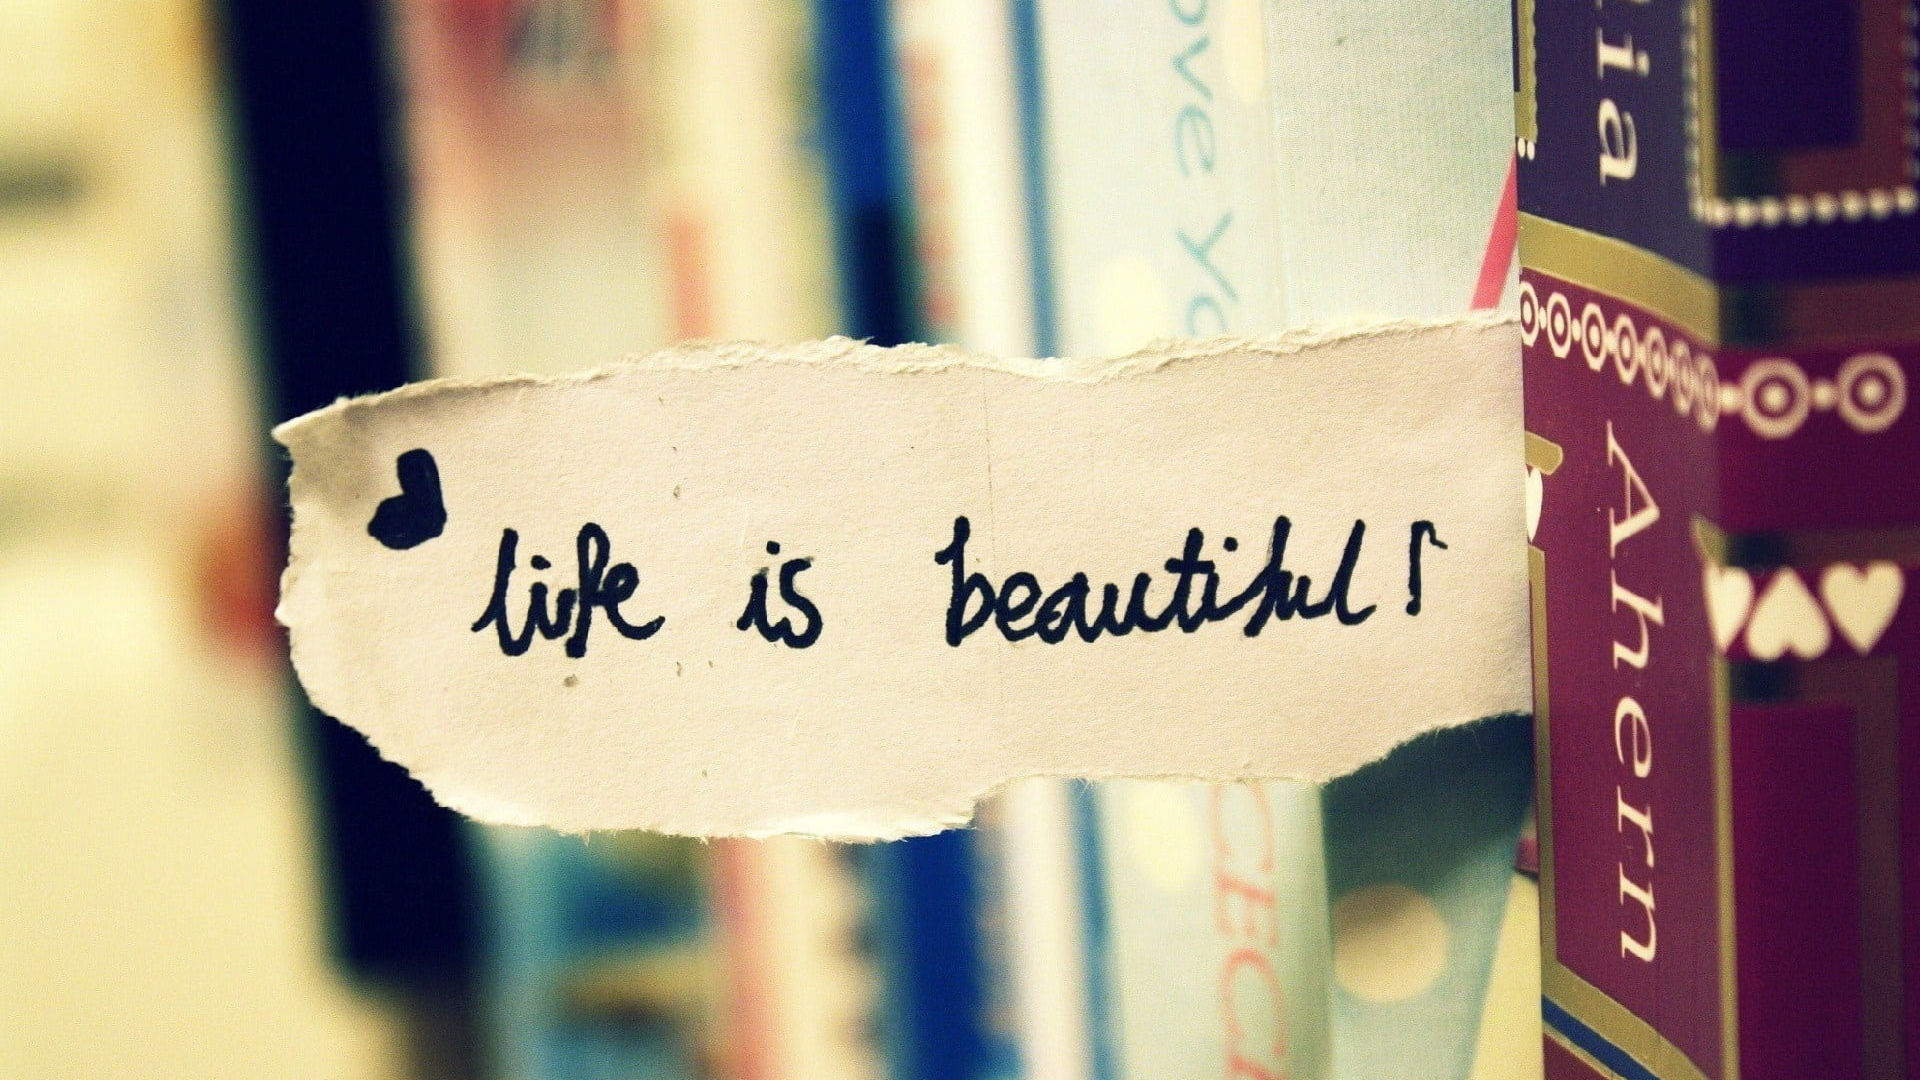 life is beautiful!
ove Yo
ia
Ahern
CECE